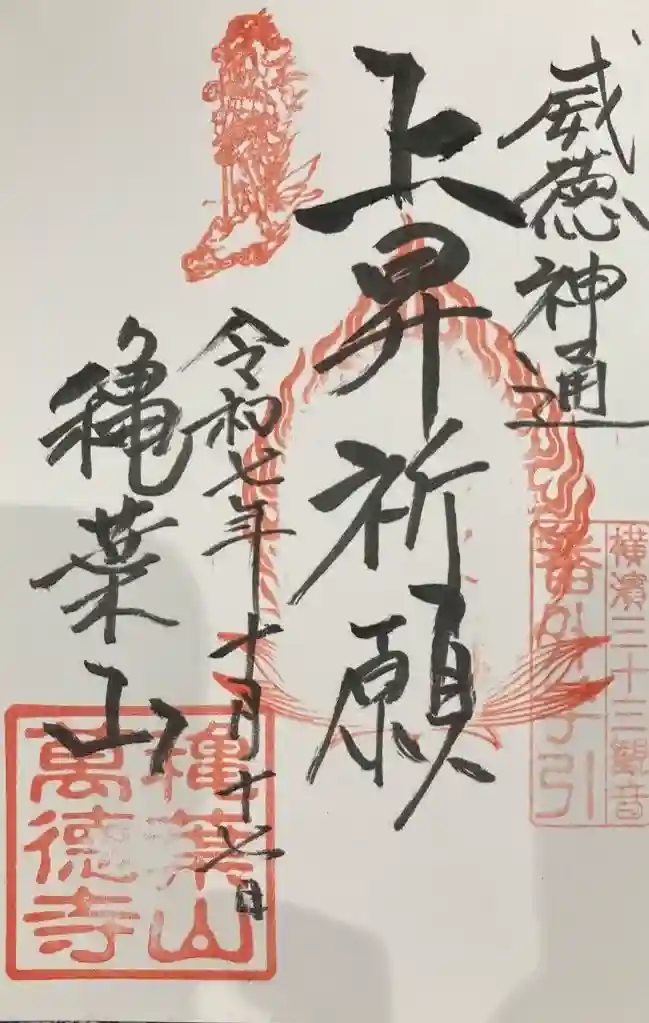 威徳神通
上昇祈願
令和七年十月十七日
穐葉山
横濱三十三觀音
番外
穐葉山
萬徳寺